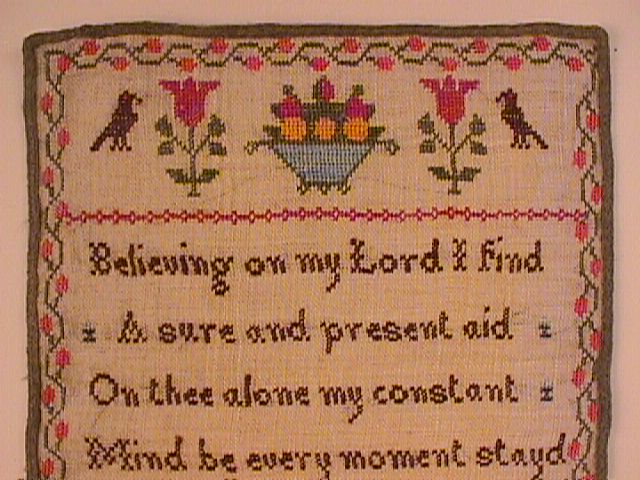 Believing on my Lord I find
A sure and present aid
On thee alone my constant
Mind be every moment stayd